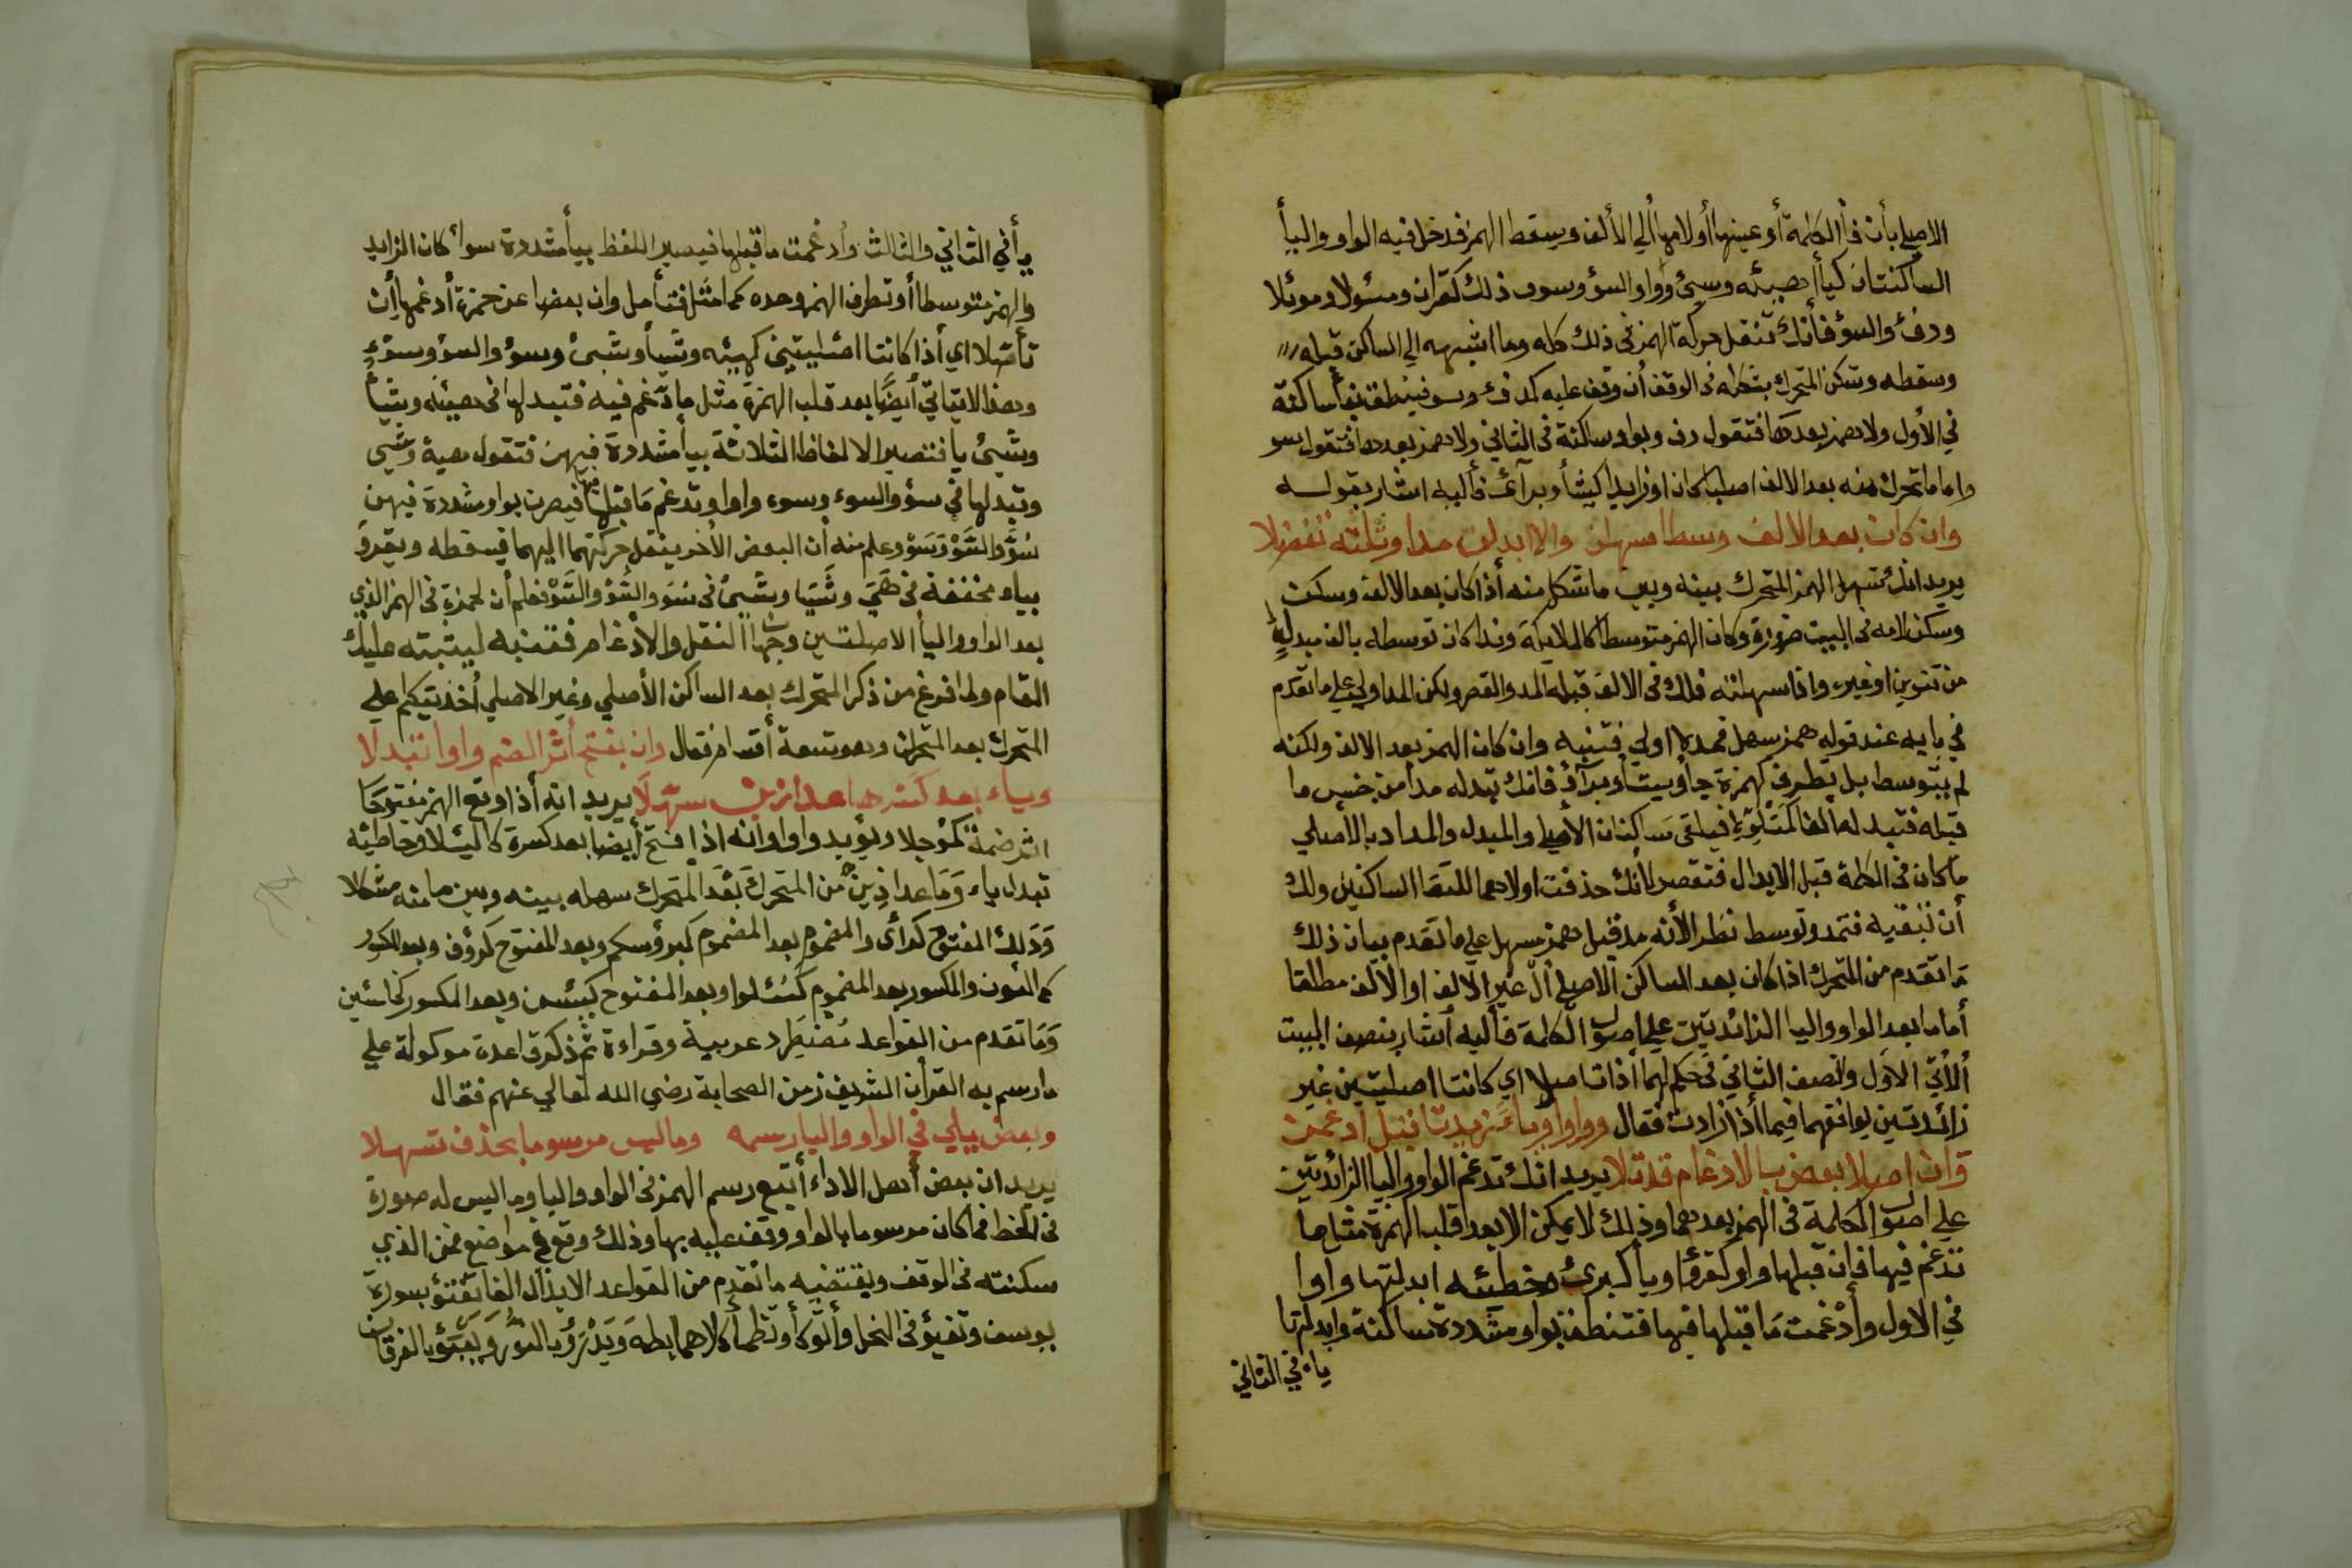 الاصلي بأن فأ الكلمة أو عينها أولامها ألي الألف ويسقط الهمز فدخل فيه الواو واليأ
الساكنتان كيأ هيئه وسيئ وواو السؤ وسوء ذلك كقران ومسئولا وموئلا
ودفئ والسؤ فأنك تنقل حركة الهمز في ذلك كله وما اشبهه الي الساكن قبله
وسقطه وتسكن المتحرك بنقله في الوقف أن وقف عليه كدفئ وسو فينطق بفأ ساكنة
في الأول ولا همز بعدها فتقول دف وبواو ساكنة في الثاني ولا همز بعدها فتقول سو
واما ما تحرك منه بعد الالف اصليا كان او زايدا كيشأ وبرآئ فأليه اشار بقوله
وان كان بعد الالف وسطا سهلن والا ابدلن مدا وثلثه تفضلا
يريد انك تسهل الهمز المتحرك بينه وبين ما شكل منه أذا كان بعد الالف وسكت
وسكن لامه في البيت ضرورة وكان الهمز متوسطا كالملايكة وندا كان توسطه بالف مبدلة
من تنوين او غيره واذا سهلته فلك في الالف قبله المد والقصر ولكن المد اولي علي ما تقدم
في بابه عند قوله همز سهل فمد اولي فتنبه وان كان الهمز بعد الالف ولكنه
لم يتوسط بل تطرف كهمزة جأ ويشأ وبرآؤ فانك تبدله مدا من جنس ما
قبله فتبدله الفا فيلقي ساكنان الأصلي والمبدل والمراد بالاصلي
ما كان في الكلمة قبل الابدال فتقصر لأنك حذفت اولاهما للتقا الساكنين ولك
أن تبقيه فتمد وتوسط نظرا لأنه مد قبل همز مسهل علي ما تقدم بيان ذلك
ما تقدم من المتحرك اذا كان بعد الساكن الاصلي أل غير الالف او الالف مطلقا
أما ما بعد الواو واليا الزائدتين علي اصول الكلمة فأليه أشار بنصف البيت
الأتي الأول والنصف الثاني في حكمهما أذا تاصلا اي كانتا اصليتين غير
زائدتين يوافقهما فيما أذا زادت فقال وواوا وياء زيدتا قبل ادغمن
وان اصلا بعض بالادغام قد تلا يريد انك تدغم الواو واليا الزائدتين
علي اصول الكلمة في الهمز بعدهما وذلك لا يمكن الا بعد قلب الهمزة مثل ما
تدغم فيها فإن قبلها واو كقرؤ اويأ كبرئ وخطئه ابدلتها واوا
في الاول وأدغمت ما قبلها فيها فتنطق بواو مشددة ساكنة وابدلتها
ياء في الثاني
يأ في الثاني والثالث وأدغمت ما قبلها فيصير اللفظ بيأ مشددة سوأ كان الزايد
والهمز متوسطا أو تطرف الهمز وحده كما مثل فتأمل وان بعضا عن حمزة أدغمها أن
تأصلا اي أذا كانتا اصليتين كهيئه وشيأ وشيئ وسؤ والسؤ وسوء
وهذا لايتاتي أيضا بعد قلب الهمزة مثل ما تدغم فيه فتبدلها في هيئة وشيأ
وشيئ يا فتصير الالفاظ الثلاثة بيأ مشددة فيهن فتقول هية وشي
وتبدلها في سؤ والسوء وسوء واوا وتدغم ما قبلها فيصرن بواو مشددة فيهن
سو والسو وسو وعلم منه أن البعض الأخر ينقل حركتهما اليهما فيسقطه ويقرؤ
بياء مخففة في هي وشيا وشي في سو والسو والسو فعلم أن لحمزة في الهمز الذي
بعد الواو واليأ الاصلتين وجهان النقل والأدغام فتنبه ليثبته عليك
المقام ولما فرغ من ذكر المتحرك بعد الساكن الأصلي وغير الاصلي أخذ يتكلم علي
المتحرك بعد المتحرك وهو تسعة أقسام فقال وان يفتح أثر الضم واوا تبدلا
وياء بعد كسر ما عدا ذين سهلا يريد انه أذا وقع الهمز مفتوحا
اثر ضمة كمؤجلا ويؤيد واوا وانه اذا فتح أيضا بعد كسرة كاليئلا وخاطئه
تبدل ياء وما عدا ذين من المتحرك بعد المتحرك سهله بينه وبين ما منه شكلا
وذلك المفتوح كرأى والمضموم بعد المضموم كبرؤسكم وبعد المفتوح كرؤف وبعد المكسور
كمالئون والمكسور بعد المضموم كسئلوا وبعد المفتوح كيئسن وبعد المكسور كخاسئين
وما تقدم من القواعد مضطرد عربية وقراءة ثم ذكر قاعدة موكولة علي
ما رسم به القرأن الشريف زمن الصحابة رضي الله تعالي عنهم فقال
وبعض يلي في الواو واليا رسمه وما ليس مرسوما بحذف تسهلا
يريد ان بعض أهل الاداء أتبع رسم الهمز في الواو واليا وما ليس له صورة
في الخط فما كان مرسوما بالواو ووقف عليه بها وذلك وقع في مواضع فمن الذي
سكنته في الوقف ويقتضيه ما تقدم من القواعد الابدال الفا تفتؤ بسورة
يوسف وتفيؤ في النحل وأتوكأ وتظمأ كلاهما بطه ويدرؤ بالنور ويعبؤ بالفرقان